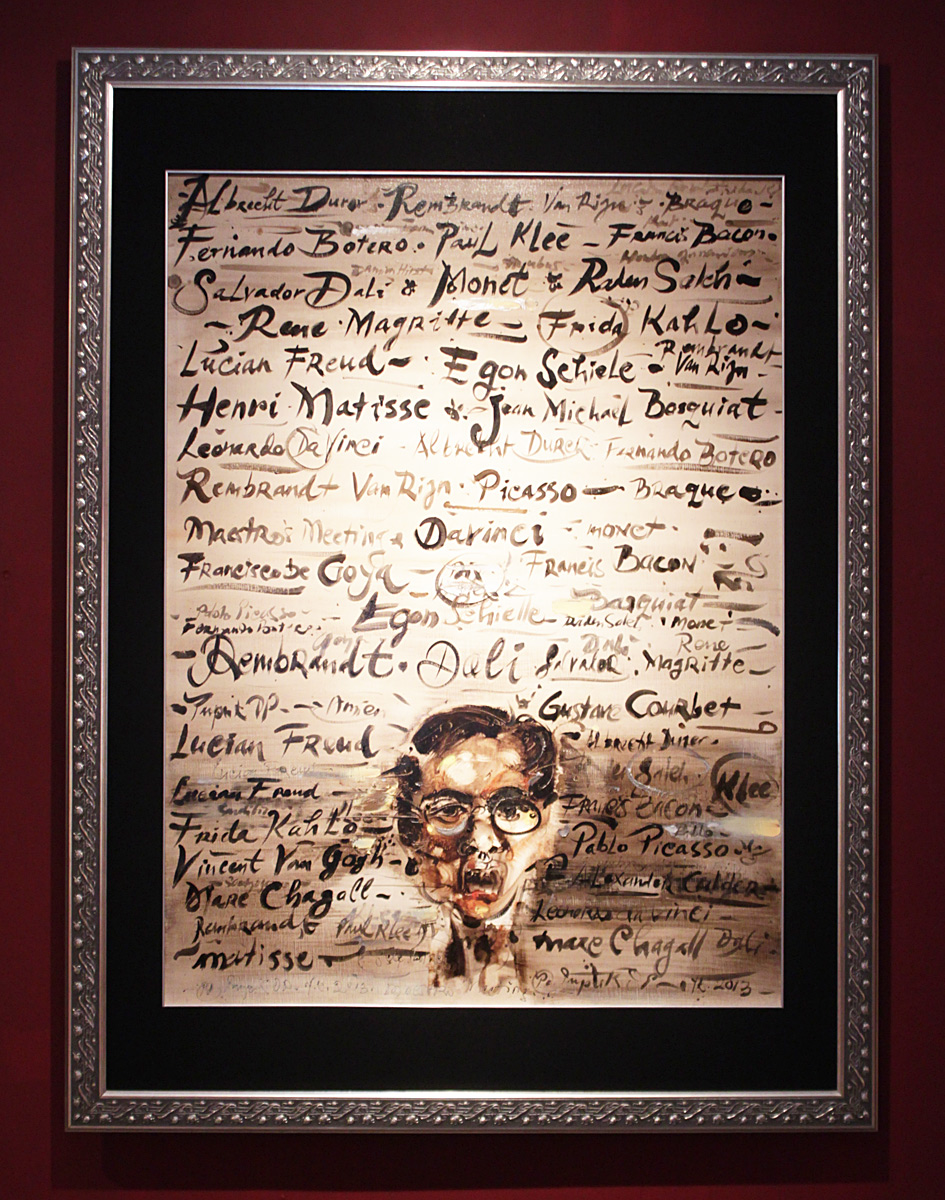 Albrecht Durer - Rembrandt Van Rijn - Braque -
Fernando Botero. Paul Klee - Francis Bacon.
Damien Hirst
Salvador Dali & Monet & Raden Saleh -
- Rene Magritte - Frida Kahlo -
Lucian Freud - Egon Schiele - Rembrandt Van Rijn -
Henri Matisse - Jean Michael Basquiat -
Leonardo Da Vinci - Albrecht Durer - Fernando Botero
Rembrandt Van Rijn - Picasso - Braque
Maestro's Meeting Davinci - monet.
Francisco De Goya - Francis Bacon
- Pablo Picasso - Egon Schielle - Basquiat
Raden Saleh monet
Goya Dali Rene
- Rembrandt. Dali Salvador. Magritte -
Gustave Courbet -
Lucian Freud Albrecht Durer.
Lucian Freud Saleh Klee
Lucian Freud - Francis Bacon -
Frida Kahlo - Pablo Picasso
Vincent Van Gogh - Allexander Calder -
Marc Chagall - Leonardo da vinci -
Rembrandt Paul Klee Marc Chagall Dali -
- matisse -
2013 2013 -